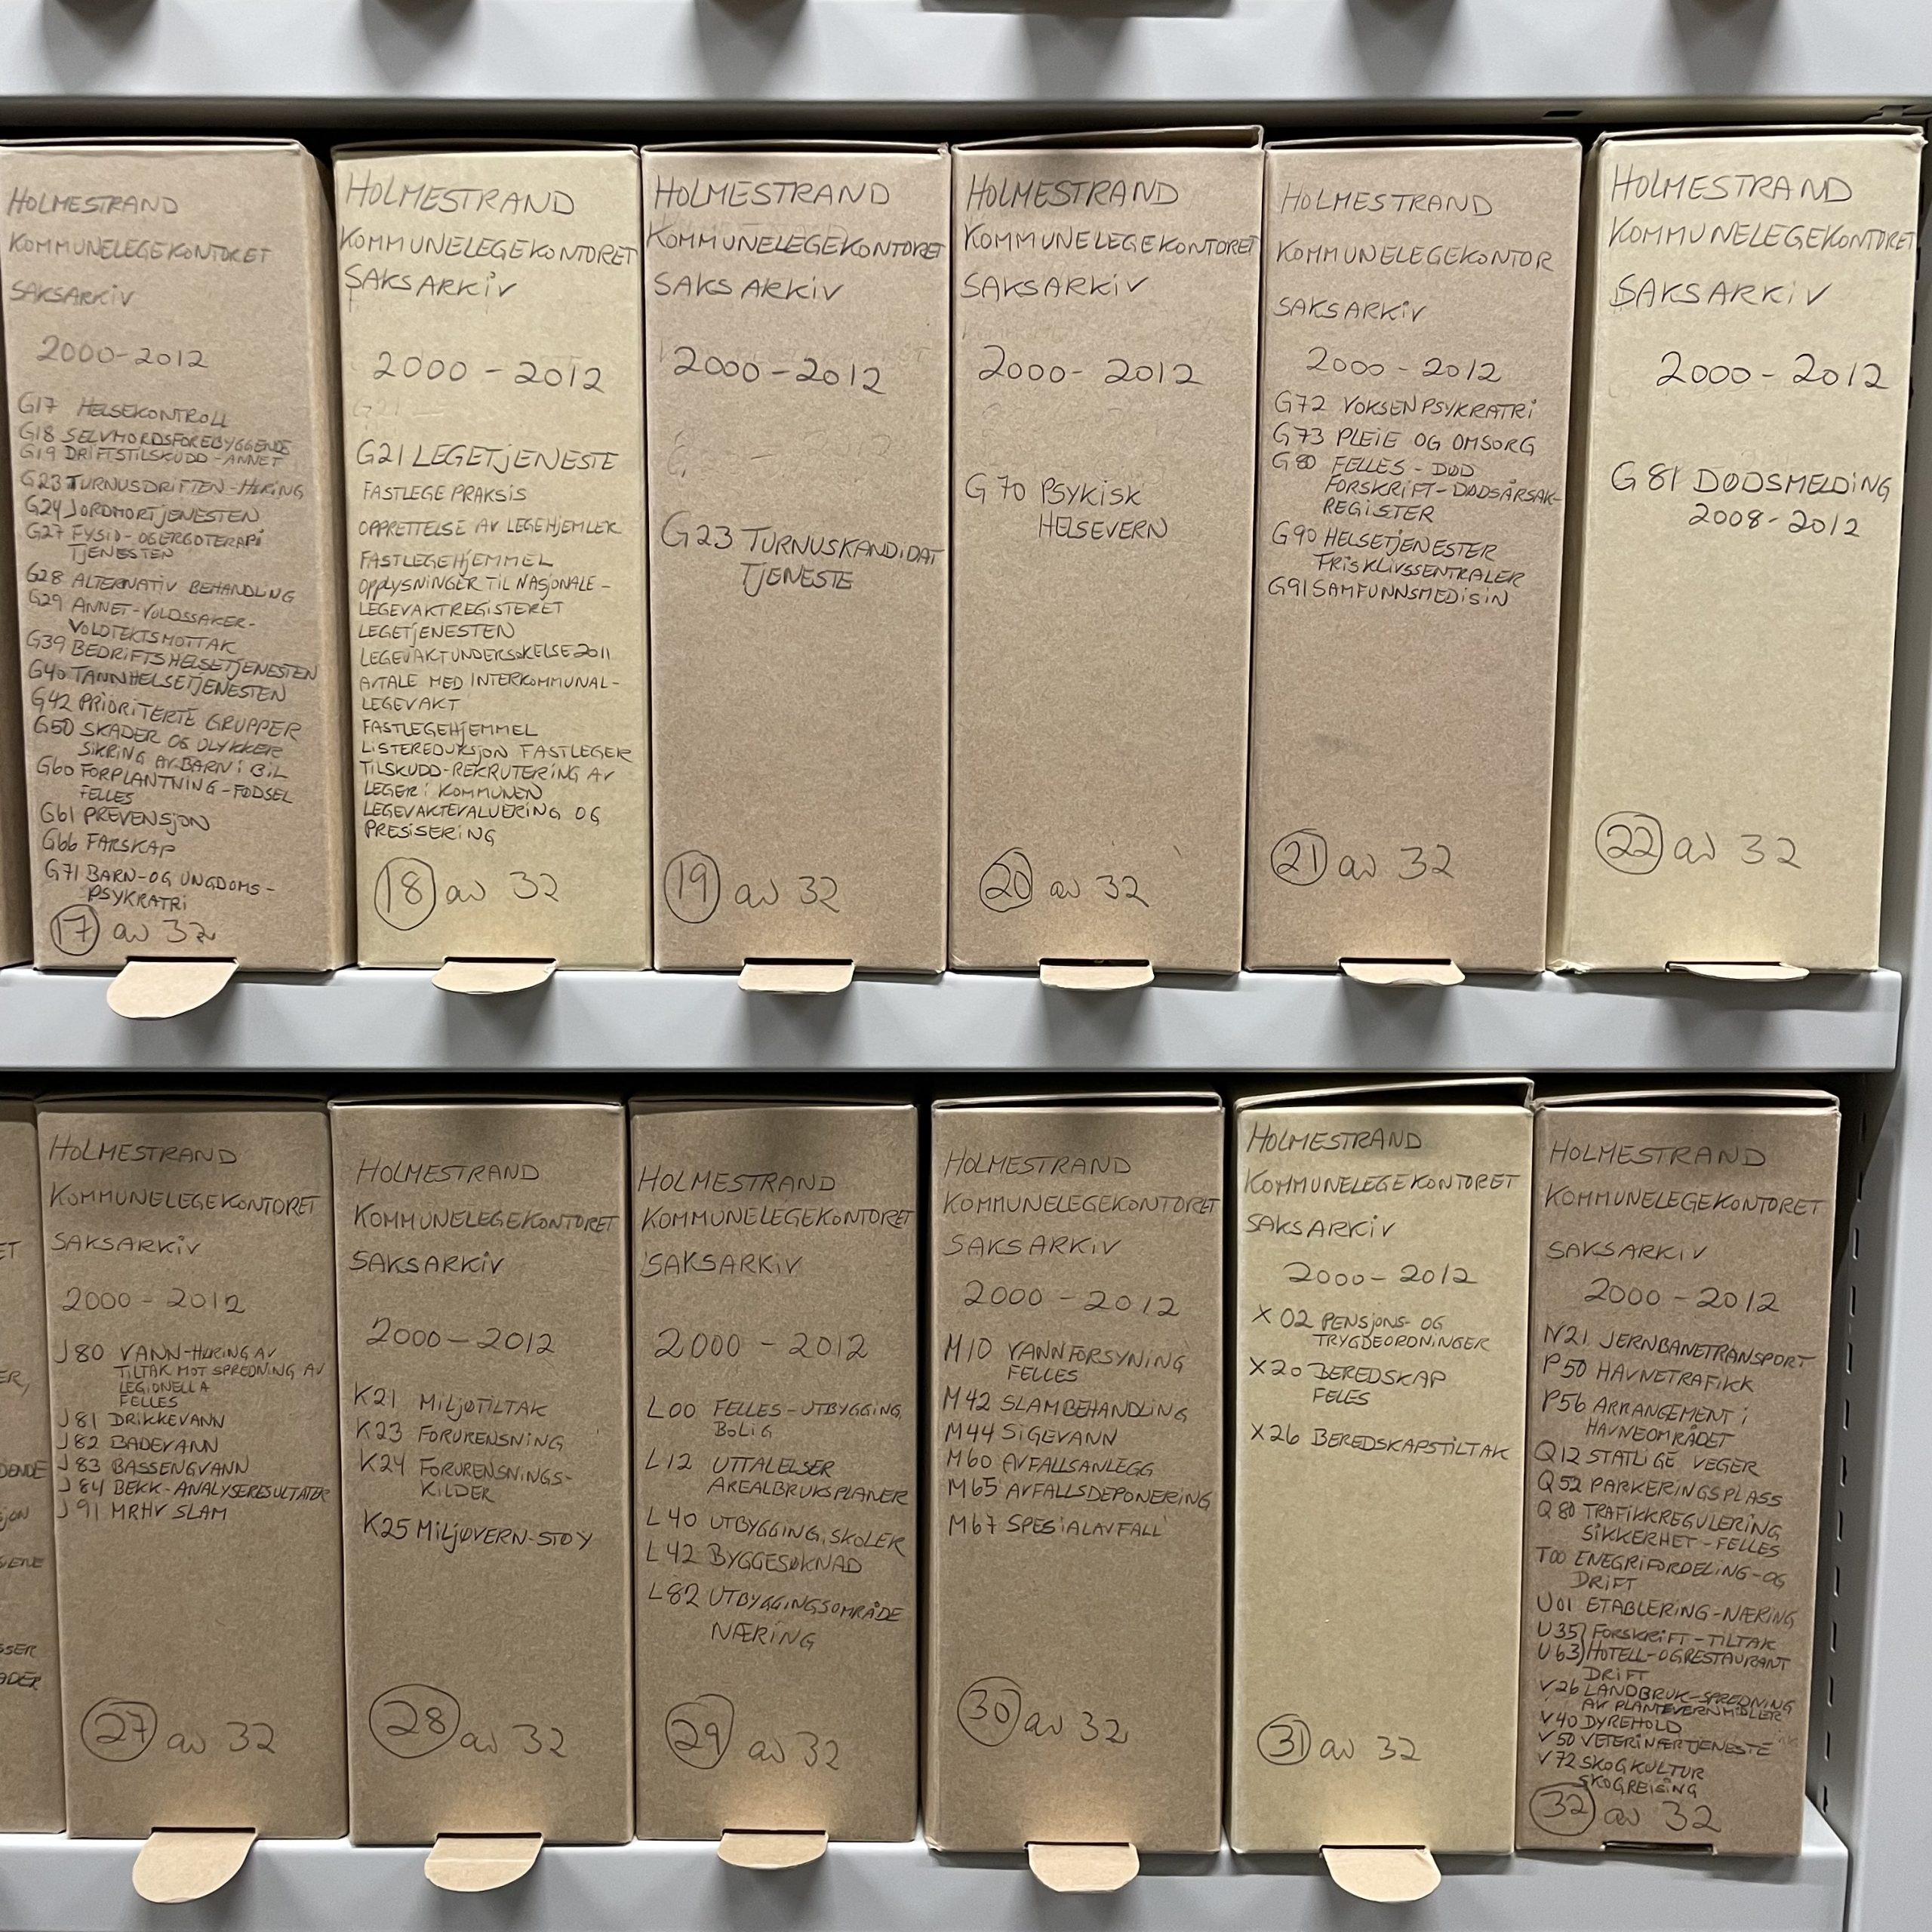 HOLMESTRAND
KOMMUNELEGEKONTORET
SAKSARKIV
2000-2012
G17 HELSEKONTROLL
G18 SELVMORDSFOREBYGGENDE
G19 DRIFTSTILSKUDD-ANNET
G23 TURNUSDRIFTEN-HØRING
G24 JORDMORTJENESTEN
G27 FYSIO-OGERGOTERAPI
TJENESTEN
G28 ALTERNATIV BEHANDLING
G29 ANNET-VOLDSSAKER-
VOLDTEKTSMOTTAK
G39 BEDRIFTSHELSETJENESTEN
G40 TANNHELSETJENESTEN
G42 PRIORITERTE GRUPPER
G50 SKADER OG ULYKKER
SIKRING AV BARN i BIL
G60 FORPLANTNING-FØDSEL
FELLES
G61 PREVENSJON
G66 FARSKAP
G71 BARN-OG UNGDOMS-
PSYKRATRI
17 av 32
HOLMESTRAND
KOMMUNELEGEKONTORET
SAKSARKIV
2000-2012
G21
G21 LEGETJENESTE
FASTLEGE PRAKSIS
OPPRETTELSE AV LEGEHJEMLER
FASTLEGEHJEMMEL
OPPLYSNINGER TIL NASJONALE-
LEGEVAKTREGISTERET
LEGETJENESTEN
LEGEVAKTUNDERSØKELSE 2011
AVTALE MED INTERKOMMUNAL-
LEGEVAKT
FASTLEGEHJEMMEL
LISTEREDUKSJON FASTLEGER
TILSKUDD-REKRUTERING AV
LEGER i KOMMUNEN
LEGEVAKTEVALUERING OG
PRESISERING
18 av 32
HOLMESTRAND
KOMMUNELEGEKONTORET
SAKSARKIV
2000-2012
G23 TURNUSKANDIDAT
TJENESTE
19 av 32
HOLMESTRAND
KOMMUNELEGEKONTORET
SAKSARKIV
2000-2012
G70 PSYKISK
HELSEVERN
20 av 32
HOLMESTRAND
KOMMUNELEGEKONTOR
SAKSARKIV
2000-2012
G72 VOKSENPSYKRATRI
G73 PLEIE OG OMSORG
G80 FELLES-DØD
FORSKRIFT-DØDSÅRSAK-
REGISTER
G90 HELSETJENESTER
FRISKLIVSSENTRALER
G91 SAMFUNNSMEDISIN
21 av 32
HOLMESTRAND
KOMMUNELEGEKONTORET
SAKSARKIV
2000-2012
G81 DØDSMELDING
2008-2012
22 av 32
HOLMESTRAND
KOMMUNELEGEKONTORET
SAKSARKIV
2000-2012
J80 VANN-HØRING AV
TILTAK MOT SPREDNING AV
LEGIONELLA
FELLES
J81 DRIKKEVANN
J82 BADEVANN
J83 BASSENGVANN
J84 BEKK-ANALYSERESULTATER
J91 MRHV SLAM
27 av 32
HOLMESTRAND
KOMMUNELEGEKONTORET
SAKSARKIV
2000-2012
K21 MILJØTILTAK
K23 FORURENSNING
K24 FORURENSNINGS-
KILDER
K25 MILJØVERN-STØY
28 av 32
HOLMESTRAND
KOMMUNELEGEKONTORET
SAKSARKIV
2000-2012
L00 FELLES-UTBYGGING,
BOLIG
L12 UTTALELSER
AREALBRUKSPLANER
L40 UTBYGGING, SKOLER
L42 BYGGESØKNAD
L82 UTBYGGINGSOMRÅDE
NÆRING
29 av 32
HOLMESTRAND
KOMMUNELEGEKONTORET
SAKSARKIV
2000-2012
M10 VANNFORSYNING
FELLES
M42 SLAMBEHANDLING
M44 SIGEVANN
M60 AVFALLSANLEGG
M65 AVFALLSDEPONERING
M67 SPESIALAVFALL
30 av 32
HOLMESTRAND
KOMMUNELEGEKONTORET
SAKSARKIV
2000-2012
X02 PENSJONS- OG
TRYGDEORDNINGER
X20 BEREDSKAP
FELES
X26 BEREDSKAPSTILTAK
31 av 32
HOLMESTRAND
KOMMUNELEGEKONTORET
SAKSARKIV
2000-2012
N21 JERNBANETRANSPORT
P50 HAVNETRAFIKK
P56 ARRANGEMENT i
HAVNEOMRÅDET
Q12 STATLIGE VEGER
Q52 PARKERINGSPLASS
Q80 TRAFIKKREGULERING
SIKKERHET-FELLES
T00 ENEGRIFORDELING-OG
DRIFT
U01 ETABLERING-NÆRING
U35) FORSKRIFT-TILTAK
U63) HOTELL-OGRESTAURANT
DRIFT
V26 LANDBRUK-SPREDNING
AV PLANTEVERNMIDLER
V40 DYREHOLD
V50 VETERINÆRTJENESTE
V72 SKOGKULTUR
SKOGREISING
32 av 32